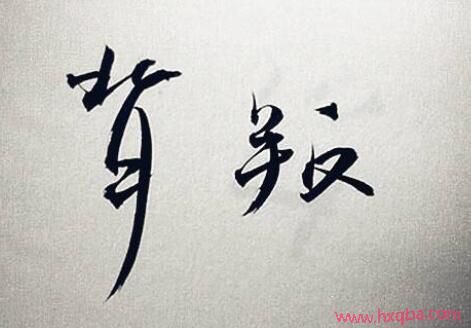 背叛
www.hxqba.com